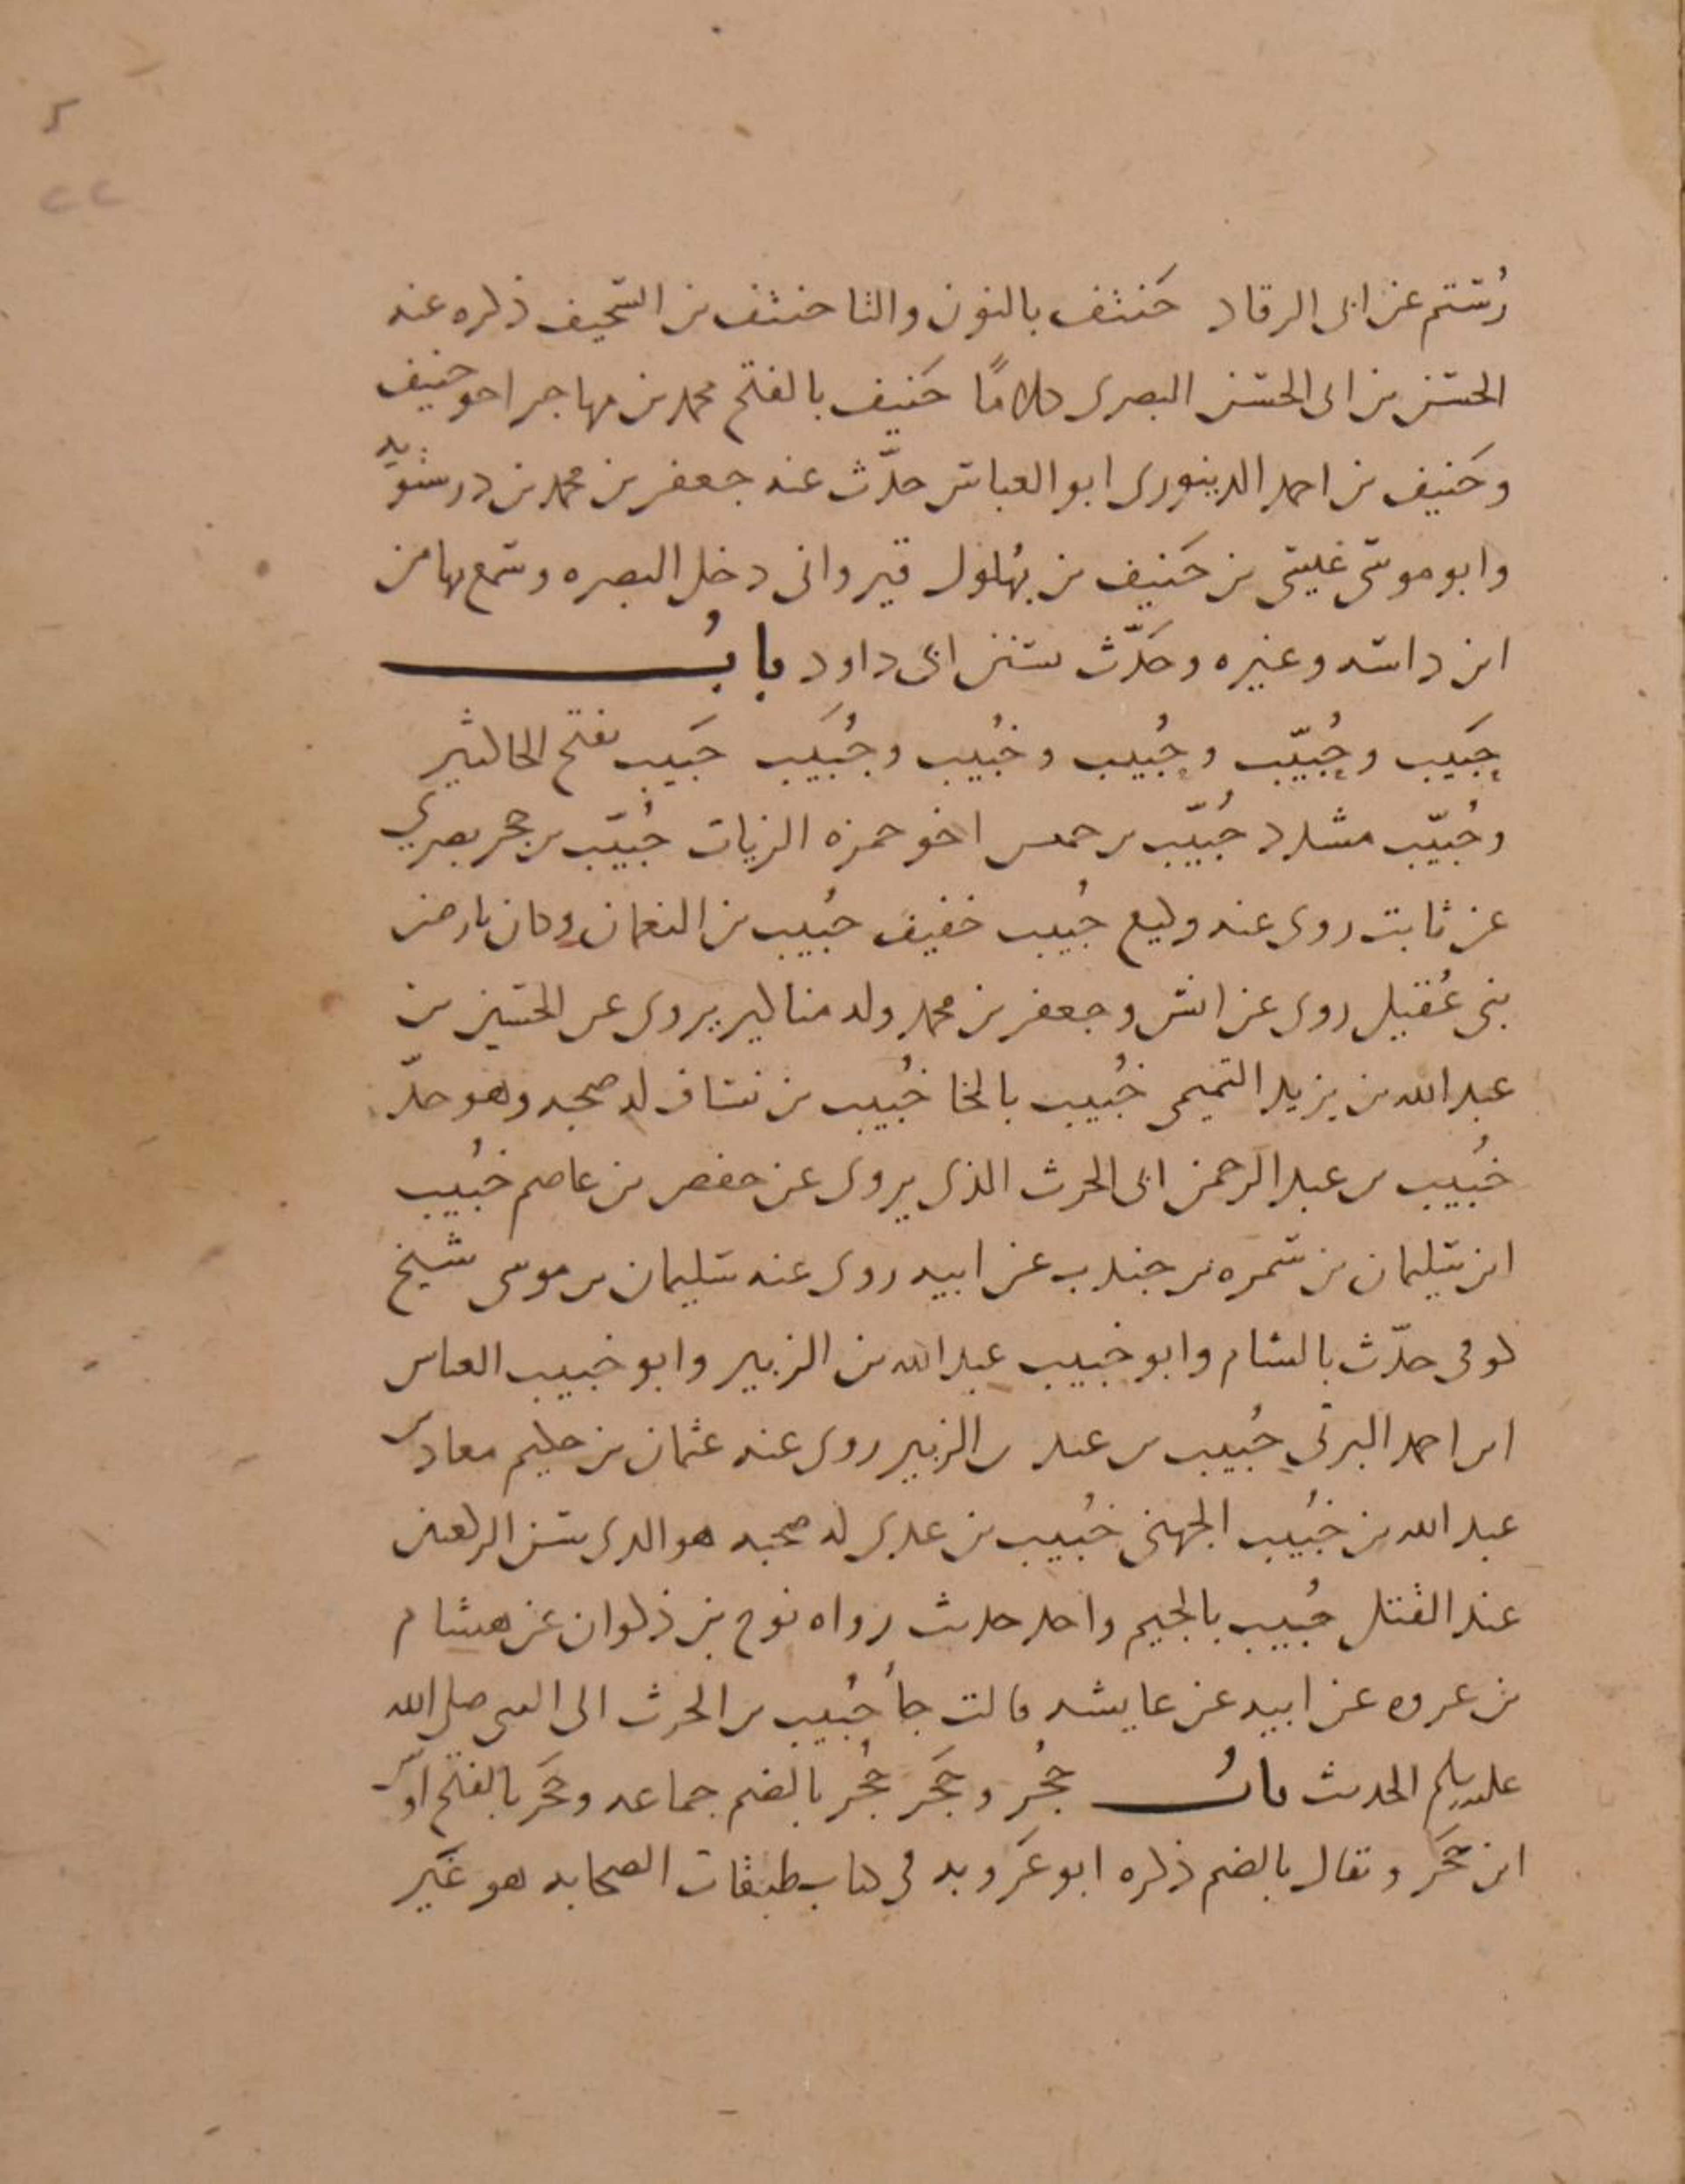 رُستم عن ابى الرقاد حَنتف بالنون والتا حنتف بن السجف ذكره عنه
الحسن بن ابى الحسن البصرى كلامًا حَنيف بالفتح محمد بن مهاجر اخو حنيف
وحَنيف بن احمد الدينورى ابو العباس حدّث عنه جعفر بن محمد بن درستويه
وابو موسى عيسى بن حَنيف بن بهُلول قيروانى دخل البصره وسمع بها من
ابن داسه وغيره وحَدّث بسنن ابى داود بابُ
حَبيب وحُبيّب وحُبيب وخُبيب وجُبيَب حَبيب بفتح الحا كثير
وحُبيّب مشدد حُبيّب بن حبيب اخو حمزه الزيات حُبيّب بن حجر بصرى
عن ثابت روى عنه وكيع حُبيب خفيف حُبيب بن النعمان وكان بارض
بنى عُقيل روى عن انس وجعفر بن محمد وله مناكير يروى عن الحسين بن
عبد الله بن يزيد التميمى خُبيب بالخا خُبيب بن يساف له صحبه وهو جدّ
خُبيب بن عبد الرحمن ابى الحرث الذى يروى عن حفص بن عاصم خُبيب
ابن سليمان بن سمره بن جندب عن ابيه روى عنه سليمان بن موسى شيخ
كوفى حدّث بالشام وابو خبيب عبد الله بن الزبير وابو خبيب العباس
ابن احمد البرتى خُبيب بن عبد بن الزبير روى عنه عثمان بن حكيم معاذ بن
عبد الله بن خُبيب الجهنى خُبيب بن عدى له صحبه هو الذى سن الركعتين
عند القتل جُبيب بالجيم واحد حديث رواه نوح بن ذكوان عن هشام
بن عروه عن ابيه عن عايشه قالت جأ جُبيب بن الحرث الى النبى صلى الله
عليه وسلم الحديث بابُ حُجُر وحَجَر حُجُر بالضم جماعه وحَجَر بالفتح اوس
ابن حَجَر ويقال بالضم ذكره ابو عَروبه فى كتاب طبقات الصحابه هو غَير